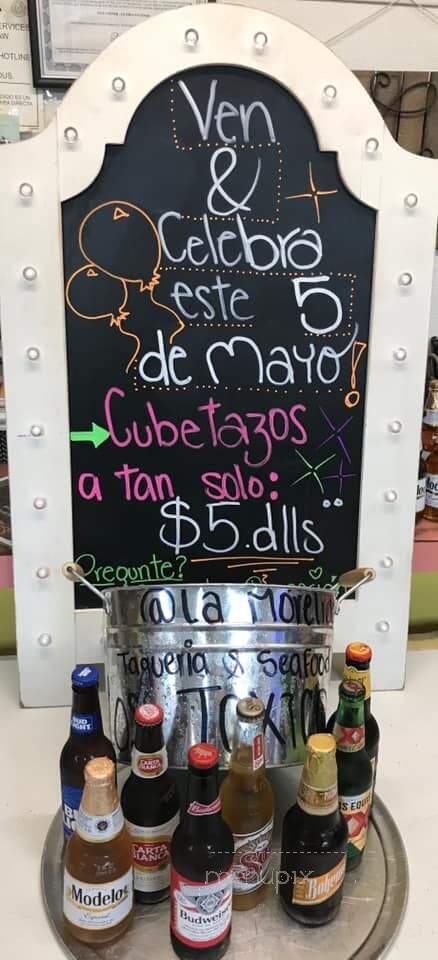 SERVICES
HOTLINE
Ven
&
Celebra
este 5
de Mayo!
Cubetazos
a tan solo:
$5.dlls
Pregunte?
@La Moreli
Taqueria & Seafood
TOXICO
BUD
LIGHT
CARTA
BLANCA
CARTA
BLANCA
Modelo
Especial
Budweiser
Bohemia
OS EQUI
menupix